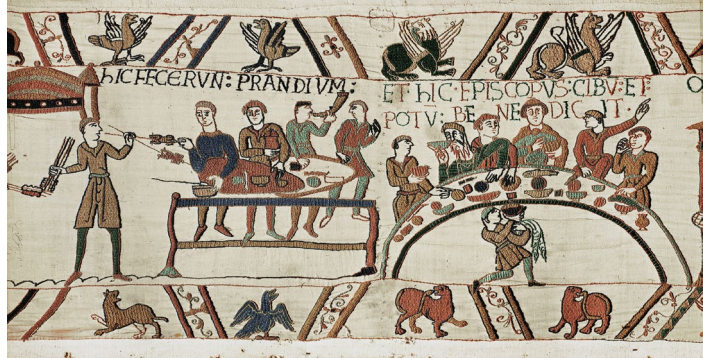 hIC FECERVN: PRANDIVM:
ET· hIC· EPISCOPVS: CIBV: ET:
POTV: BE NE DIC IT·